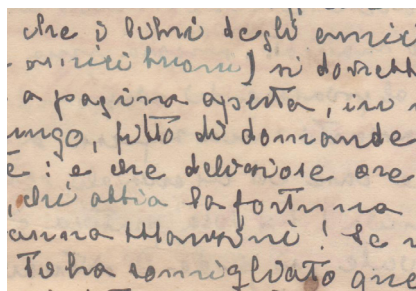 che i libri degli amici
amici buoni) si dovrebb
a pagina aperta, in
ungo, fitto di domande
e: e che deliziose ore
chi abbia la fortuna
anna Manzini! Se
To ha somigliato que